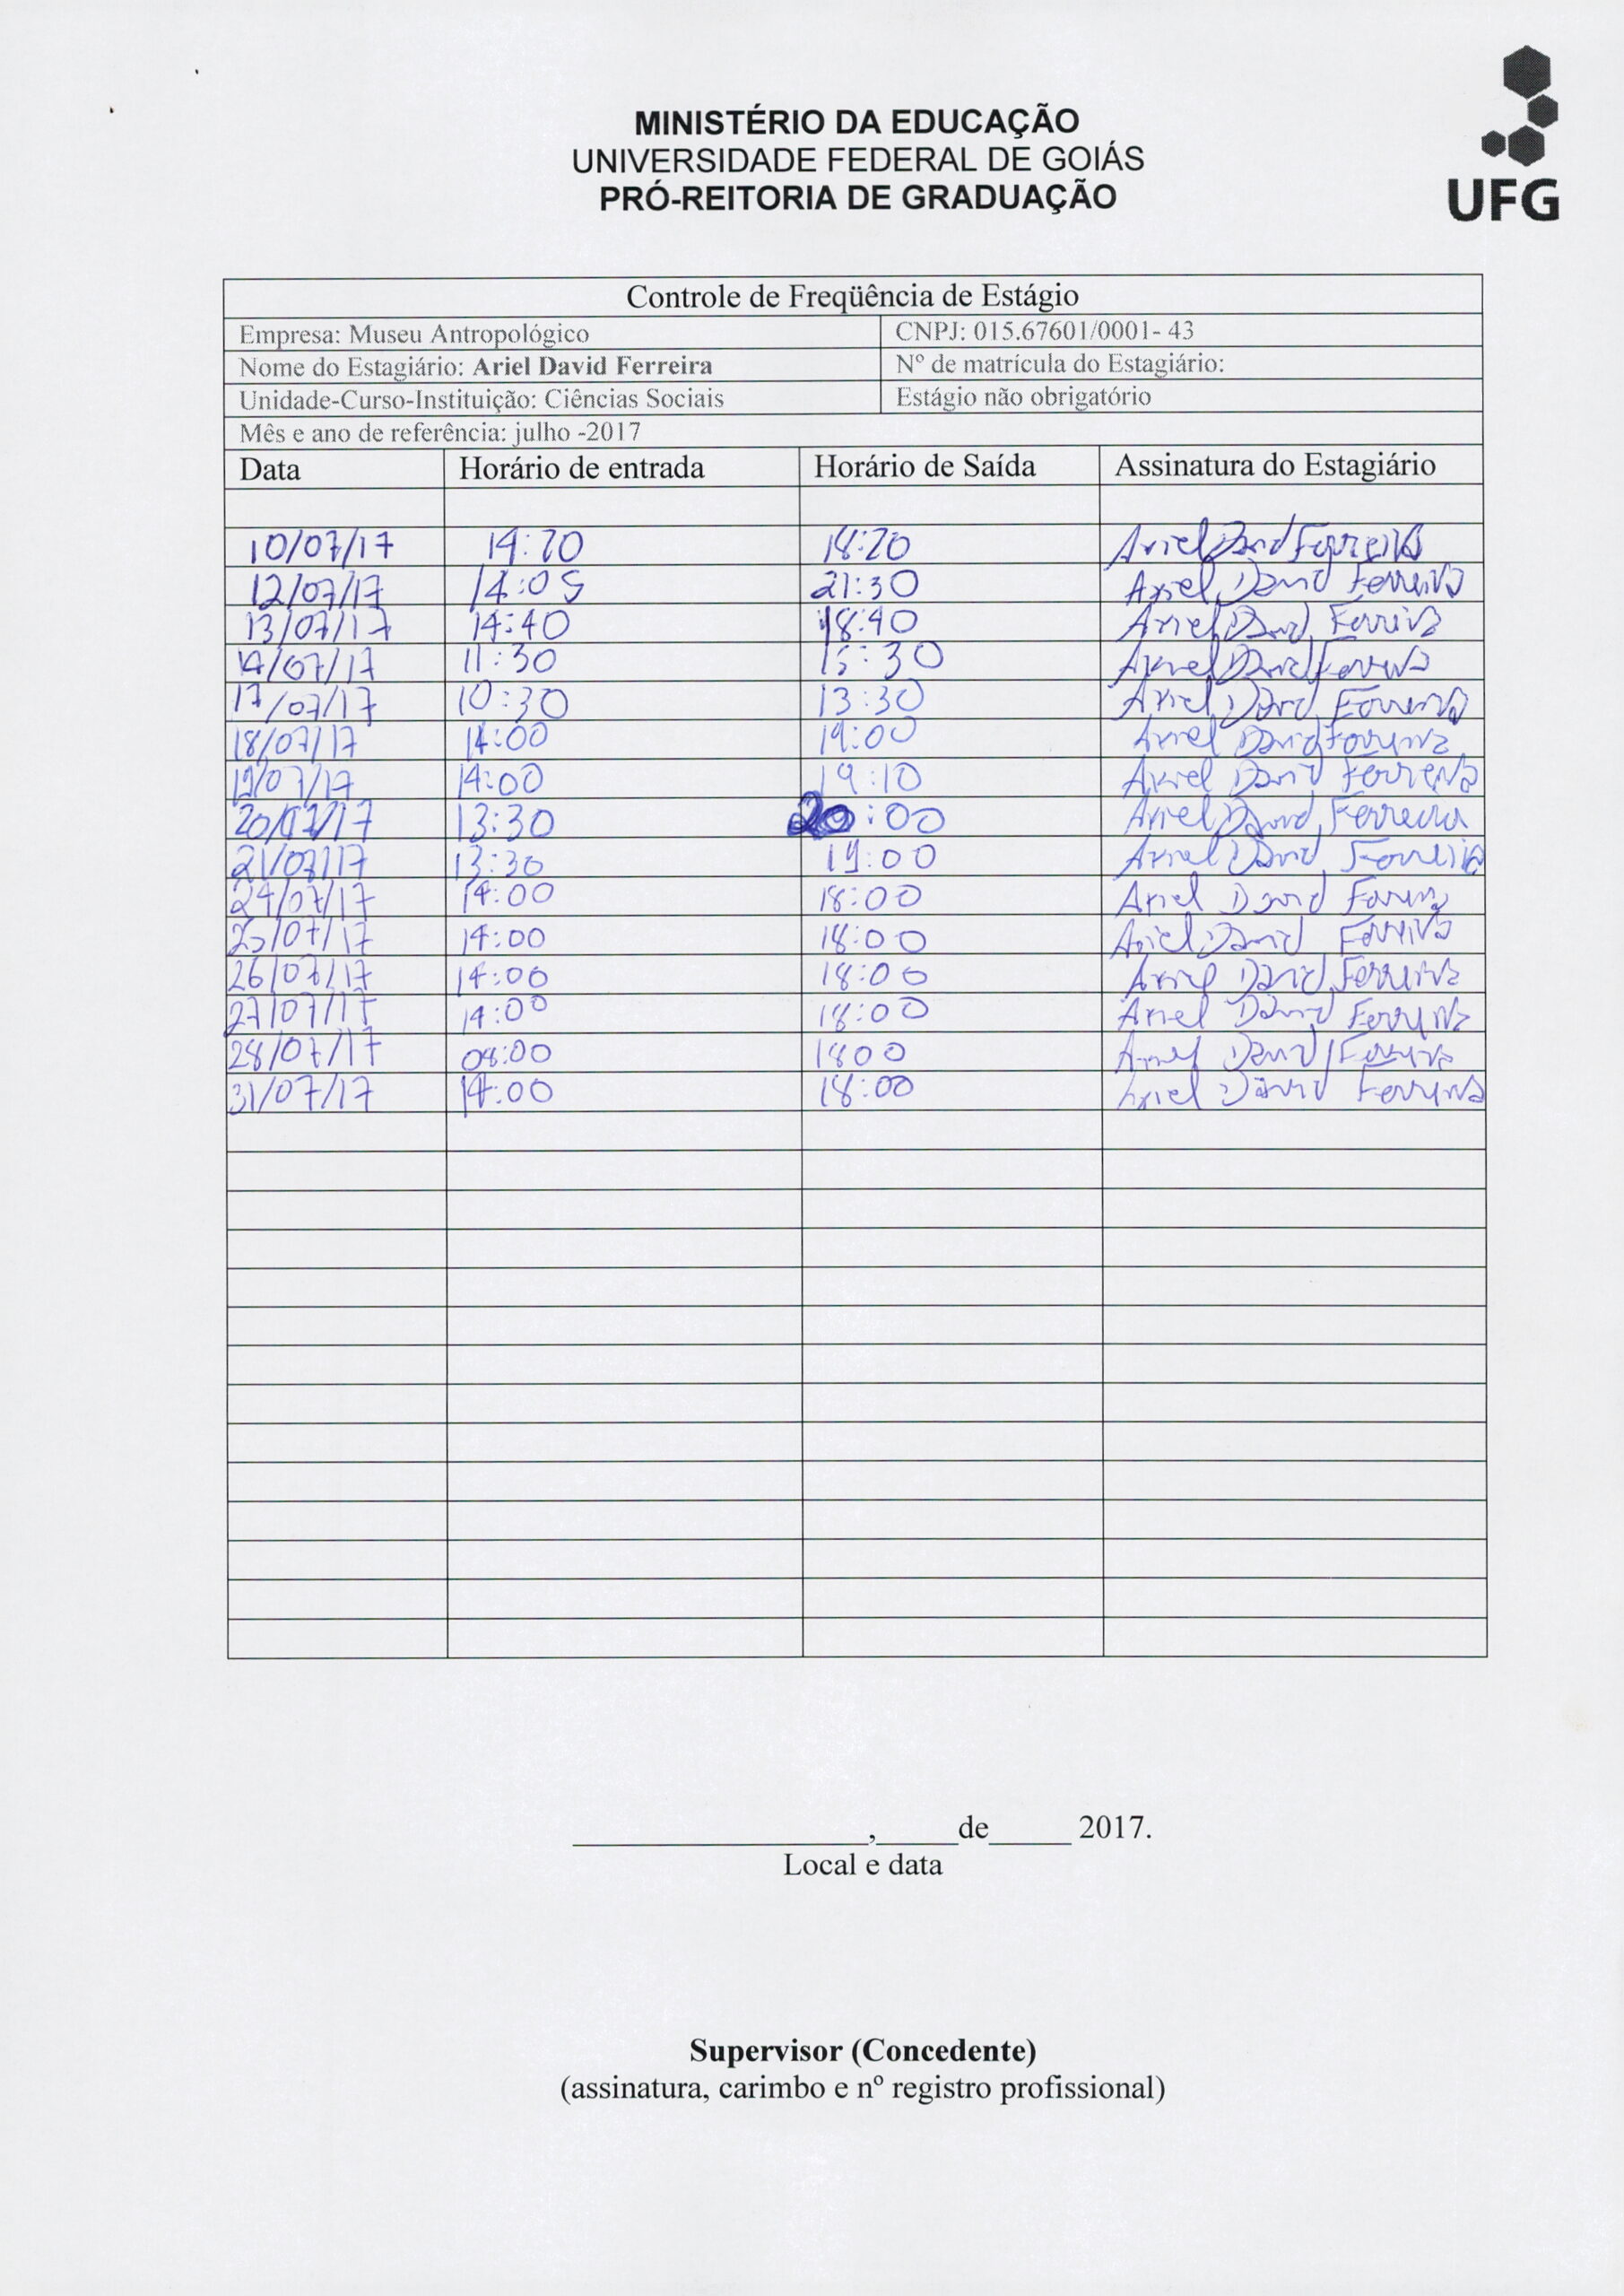 MINISTÉRIO DA EDUCAÇÃO
UNIVERSIDADE FEDERAL DE GOIÁS
PRÓ-REITORIA DE GRADUAÇÃO
UFG
Controle de Freqüência de Estágio
Empresa: Museu Antropológico CNPJ: 015.67601/0001- 43
Nome do Estagiário: Ariel David Ferreira Nº de matrícula do Estagiário:
Unidade-Curso-Instituição: Ciências Sociais Estágio não obrigatório
Mês e ano de referência: julho -2017
Data Horário de entrada Horário de Saída Assinatura do Estagiário
10/07/17 14:20 18:20 Ariel David Ferreira
12/07/17 14:05 21:30 Ariel David Ferreira
13/07/17 14:40 18:40 Ariel David Ferreira
14/07/17 11:30 15:30 Ariel David Ferreira
17/07/17 10:30 13:30 Ariel David Ferreira
18/07/17 14:00 19:00 Ariel David Ferreira
19/07/17 14:00 19:10 Ariel David Ferreira
20/07/17 13:30 20:00 Ariel David Ferreira
21/07/17 13:30 19:00 Ariel David Ferreira
24/07/17 14:00 18:00 Ariel David Ferreira
25/07/17 14:00 18:00 Ariel David Ferreira
26/07/17 14:00 18:00 Ariel David Ferreira
27/07/17 14:00 18:00 Ariel David Ferreira
28/07/17 08:00 1800 Ariel David Ferreira
31/07/17 14:00 18:00 Ariel David Ferreira
______________,_____de_____ 2017.
Local e data
Supervisor (Concedente)
(assinatura, carimbo e nº registro profissional)